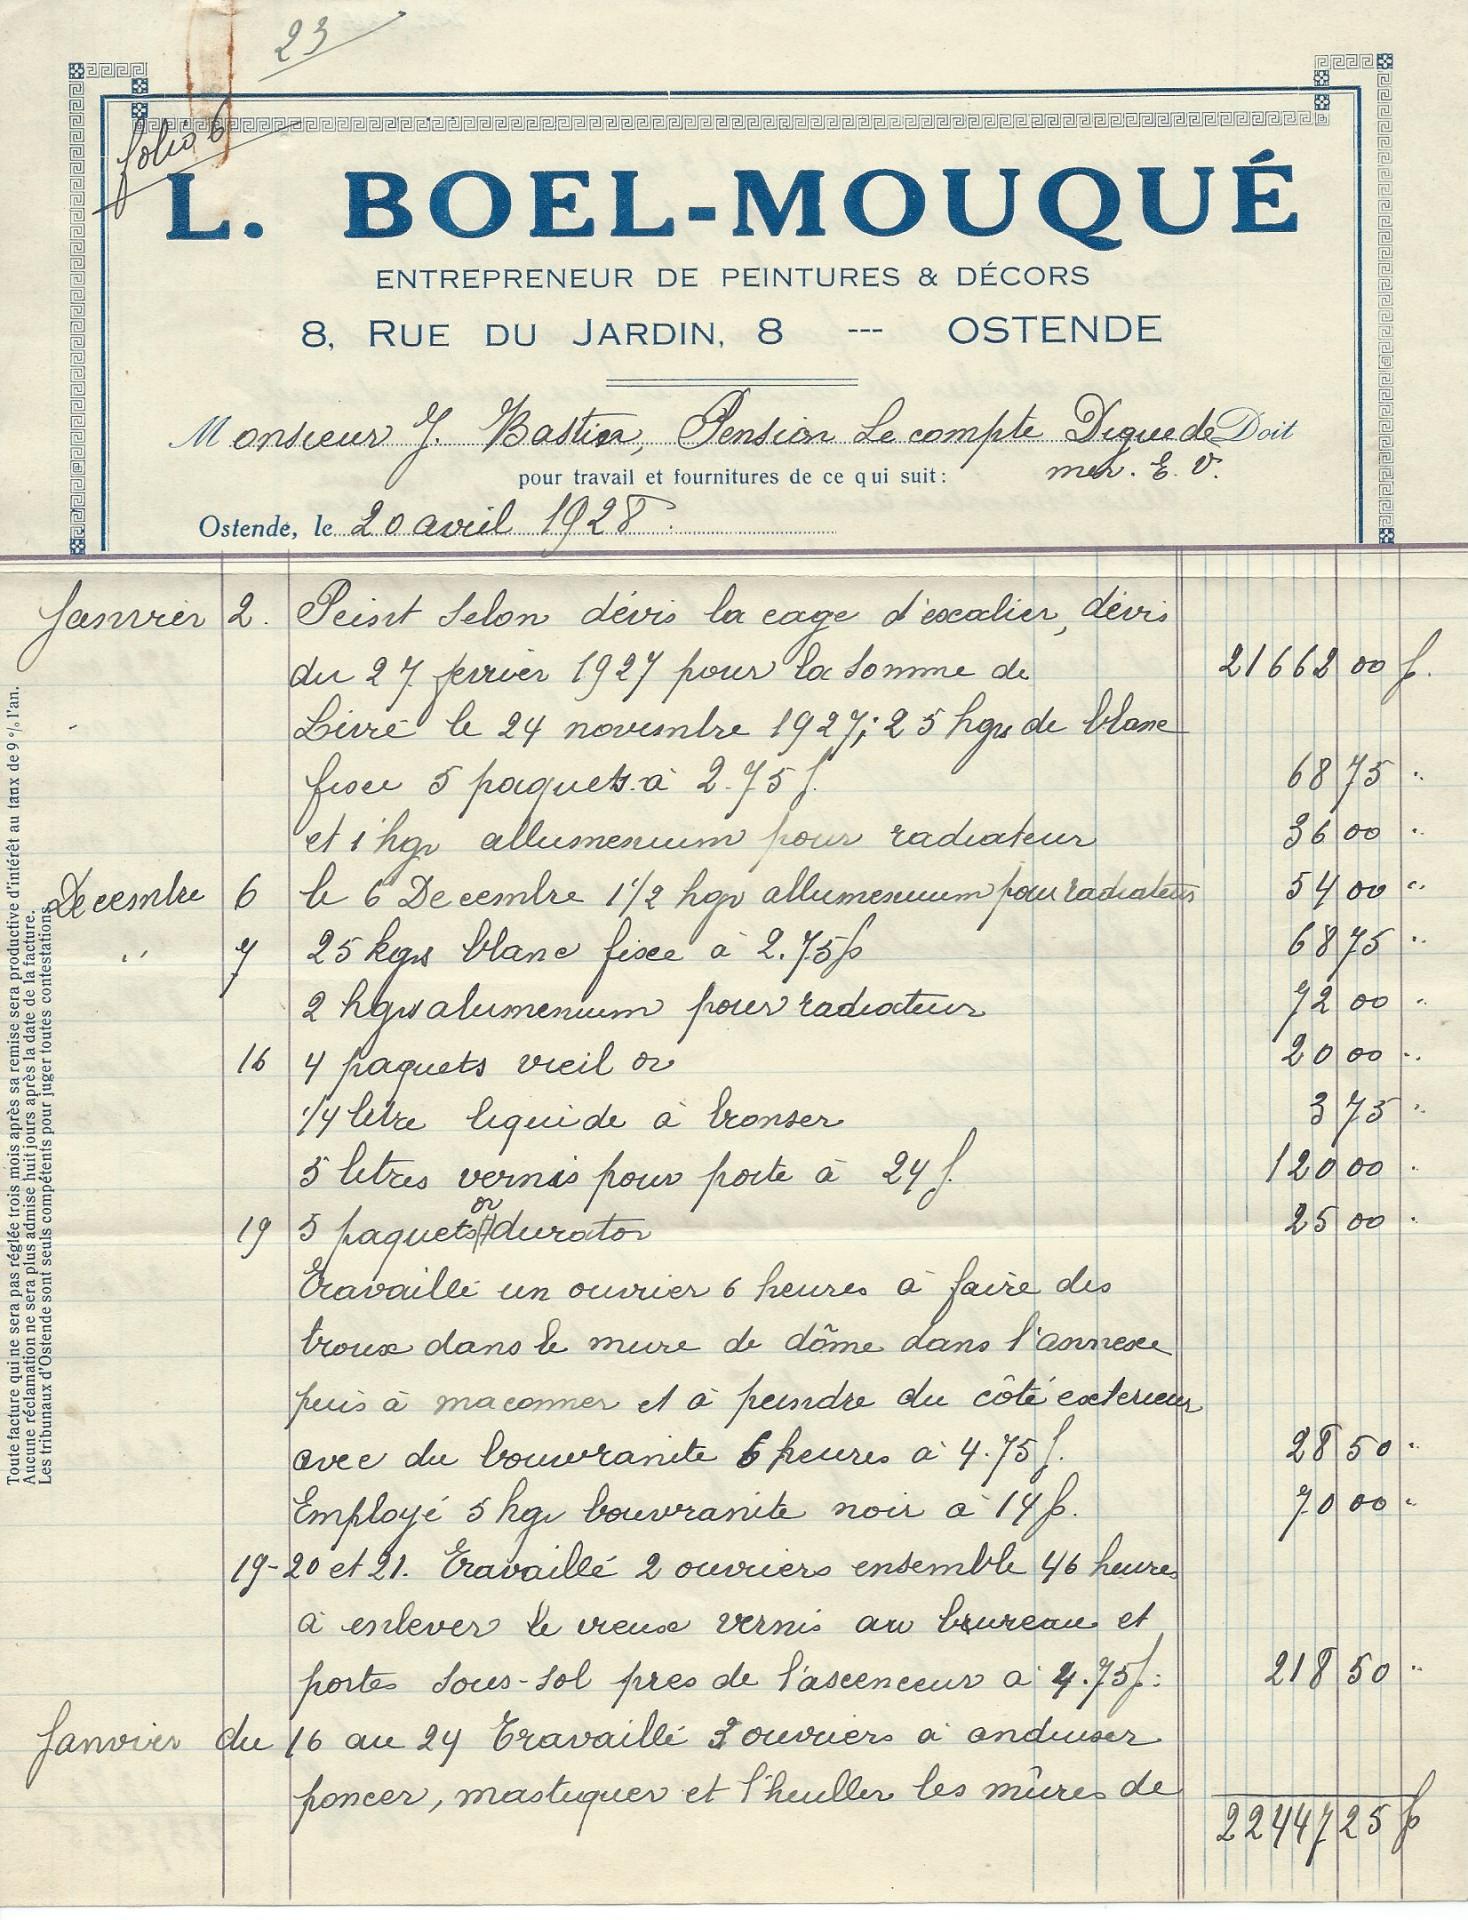 23
folio 6
L. BOEL-MOUQUÉ
ENTREPRENEUR DE PEINTURES & DÉCORS
8, RUE DU JARDIN, 8 --- OSTENDE
Monsieur J. Bastin, Pension Le compte Digue de Doit
mer. E. V.
pour travail et fournitures de ce qui suit:
Ostende, le 20 avril 1928.
Janvier 2. Peint selon dévis la cage d'escalier, dévis
du 27 fevrier 1927 pour la somme de 21662 00 f.
Livré le 24 novembre 1927; 25 kgrs de blanc
fixe 5 paquets à 2.75 f. 68 75 "
et 1 kgr allumenium pour radiateur 36 00 "
Decembre 6 le 6 Decembre 1 1/2 kgr allumenium pour radiateurs 54 00 "
" 7 25 kgrs blanc fixe à 2.75 f 68 75 "
2 kgrs alumenium pour radiateur 72 00 "
16 4 paquets vieil or 20 00 "
1/4 litre liquide à bronser 3 75 "
5 litres vernis pour porte à 24 f. 120 00 "
19 5 paquets or durator 25 00 "
Travaillé un ouvrier 6 heures à faire des
troux dans le mure de dôme dans l'annexe
puis à maconner et à peindre du côté exterieur
avec du bouvranite 6 heures à 4.75 f. 28 50 "
Employé 5 kgr bouvranite noir à 14 f. 70 00 "
19-20 et 21. Travaillé 2 ouvriers ensemble 46 heures
à enlever le vieux vernis au bureau et
portes sous-sol pres de l'ascenceur a 4.75 f: 218 50 "
Janvier du 16 au 24 Travaillé 2 ouvriers à anduiser
poncer, mastiquer et l'huiller les mûres de
22447 25 f
Toute facture qui ne sera pas réglée trois mois après sa remise sera productive d'intérêt au taux de 9 % l'an.
Aucune réclamation ne sera plus admise huit jours après la date de la facture.
Les tribunaux d'Ostende sont seuls compétents pour juger toutes contestations.